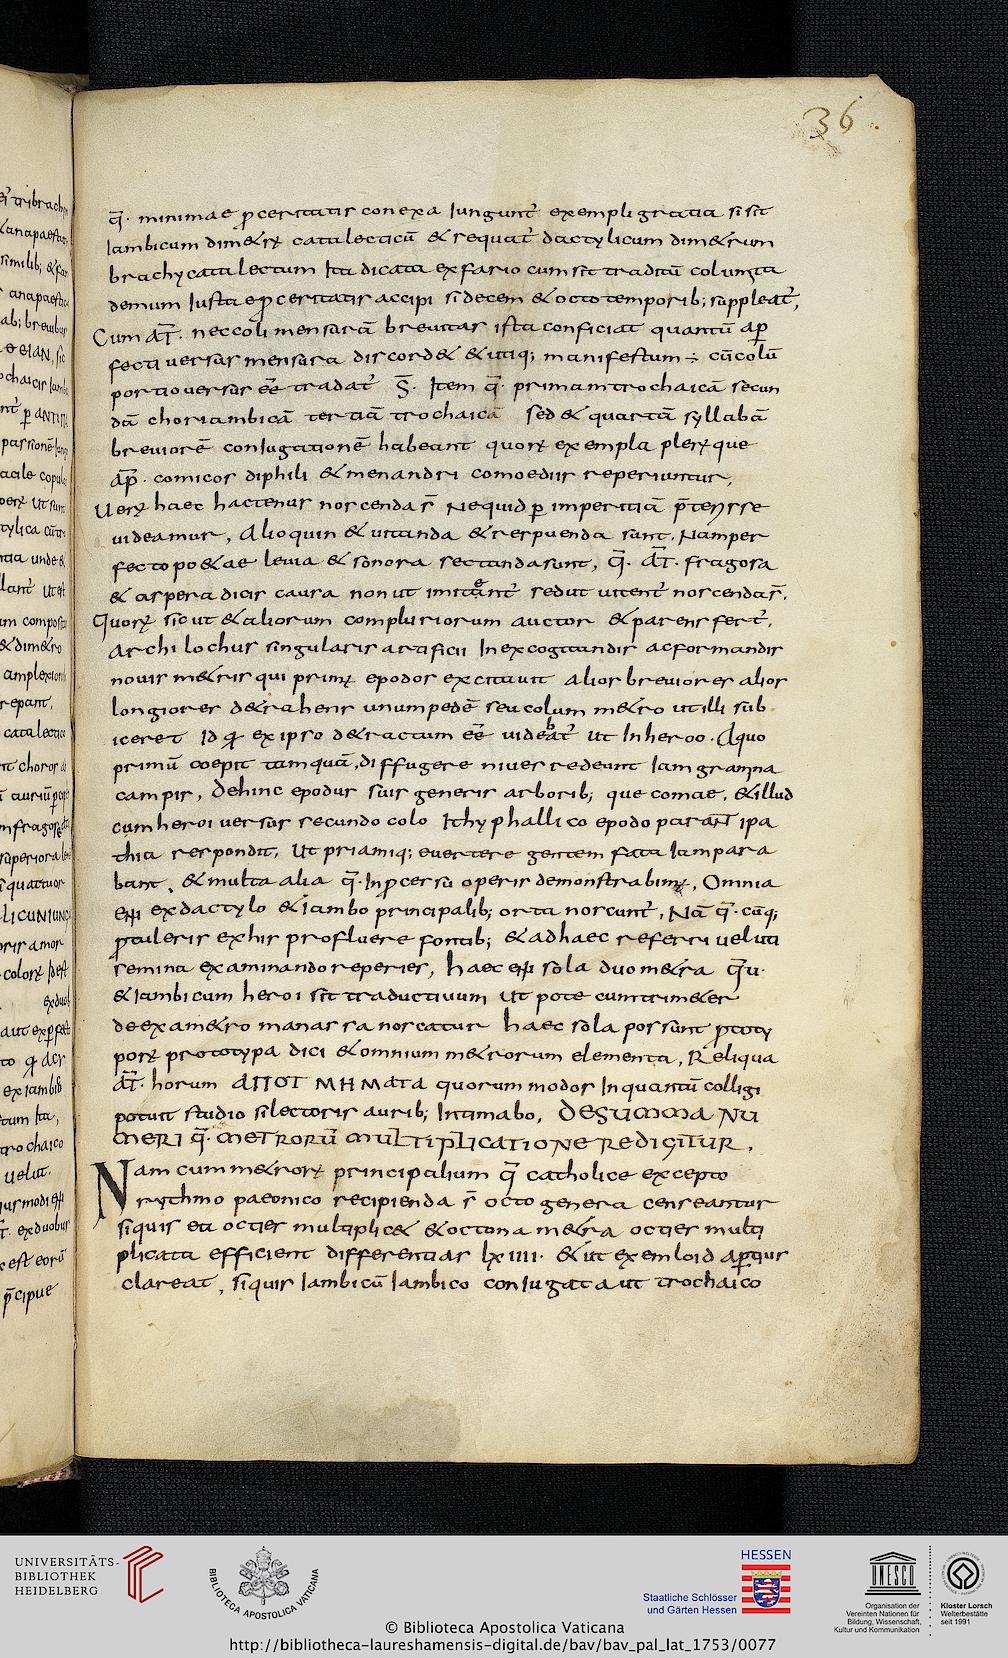 36.
q̄. minimae proceritatis conexa Iungunt̄ exempli gratia si sit
Iambicum dim&rꝝ catalecticū & sequat̄ dactylicum dim&rum
brachycatalectum Ita dicata ex fario cum sit traditū colum ita
demum Iusta & proceritatis accipi si decem & octo temporib; suppleat̄,
Cum aūt. nec coli mensurā breuitas ista conficiat quantū
fecti uersus mensura discord& & utiq; manifestum ÷ cū colū
portio uersus eē tradat̄ S̄. Item q̄. primam trochaicā secun
dā choriambicā tertiā trochaicā sed & quartā syllabā
breuiorē coniugationē habeant quorꝝ exempla plerꝝque
ap̄. comicos diphili & menandri comoediis reperiuntur,
Uerꝝ haec hactenus noscenda s̄ Nequid ꝑ imperitiā p̄terisse
uideamur, Alioquin & uitanda & respuenda sunt, Nam per
fecto po&ae leuia & sonora sectanda sunt, q̄. aūt. fragosa
& aspera dicis causa non ut imitent̄ sed ut uitent̄ noscenda s̄.
Quorꝝ sicut & aliorum compluriorum auctor & parens fert̄,
Archilochus singularis artificii In excogitandis ac formandis
nouis m&ris qui primꝝ epodos excitauit alios breuiores alios
longiores d&rahens unum pedē seu colum m&ro ut illi sub
iceret Id qđ ex ipso d&ractum eē uideat̄ ut In heroo. A quo
primū coepit tamquā, diffugere niues redeunt Iam gramina
campis, Dehinc epodus suis generis arborib; que comae, & illud
cum heroi uersus secundo colo Ithyphallico epodo parant ipa
thia respondit, Ut priamiq; euertere gentem fata Iam para
bant, & multa alia q̄. In processu operis demonstrabimꝰ, Omnia
eni ex dactylo & iambo principalib; orta noscunt̄, Nā q̄.cūq;
protuleris ex his profluere fontib; & ad haec referri ueluti
semina examinando reperies, haec eni sola duo m&ra q̄u.
& Iambicum heroi sit traductiuum Ut pote cum trim&er
de exam&ro manassa noscatur haec sola possunt ptoty
porꝝ prototypa dici & omnium m&rorum elementa, Reliqua
aūt. horum APOTMHMATA quorum modos In quantū colligi
potuit studio si lectoris aurib; Intimabo, DE SUMMA NU
MERI q̄. METRORŪ MULTIPLICATIONE REDIGITUR,
Nam cum m&rorꝝ principalium q̄ catholice excepto
rythmo paeonico recipienda s̄ octo genera censeantur
si quis ea octies multiplic& & octona m&ra octies multi
plicata efficient differentias lxiiii. & ut exemlo id aptius
clareat, si quis Iambicū Iambico coniugat aut trochaico
UNIVERSITÄTS-
BIBLIOTHEK
HEIDELBERG
BIBLIOTECA APOSTOLICA VATICANA
HESSEN
Staatliche Schlösser
und Gärten Hessen
UNESCO
Organisation der
Vereinten Nationen für
Bildung, Wissenschaft,
Kultur und Kommunikation
Kloster Lorsch
Welterbestätte
seit 1991
© Biblioteca Apostolica Vaticana
http://bibliotheca-laureshamensis-digital.de/bav/bav_pal_lat_1753/0077